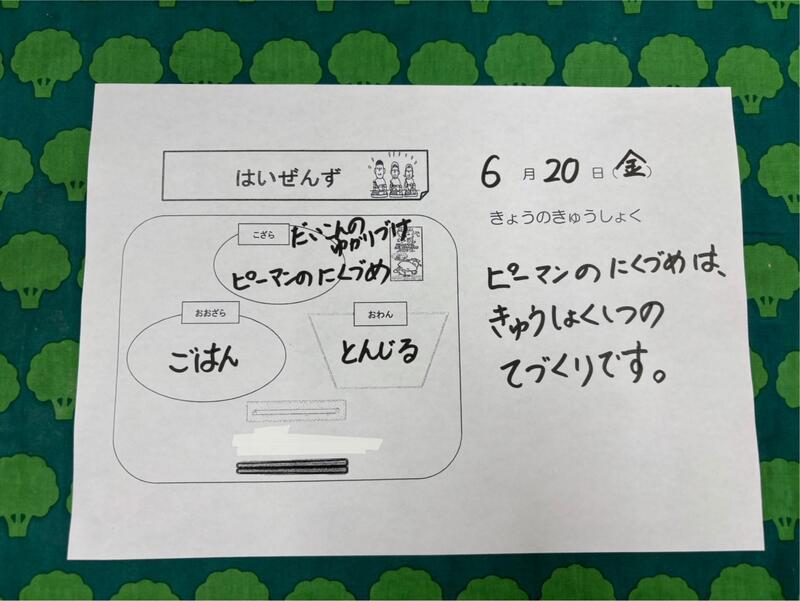 はいぜんず
こざら
だいこんの
ゆかりづけ
ピーマンのにくづめ
おおざら
ごはん
おわん
とんじる
6月20日(金)
きょうのきゅうしょく
ピーマンのにくづめは、
きゅうしょくしつの
てづくりです。